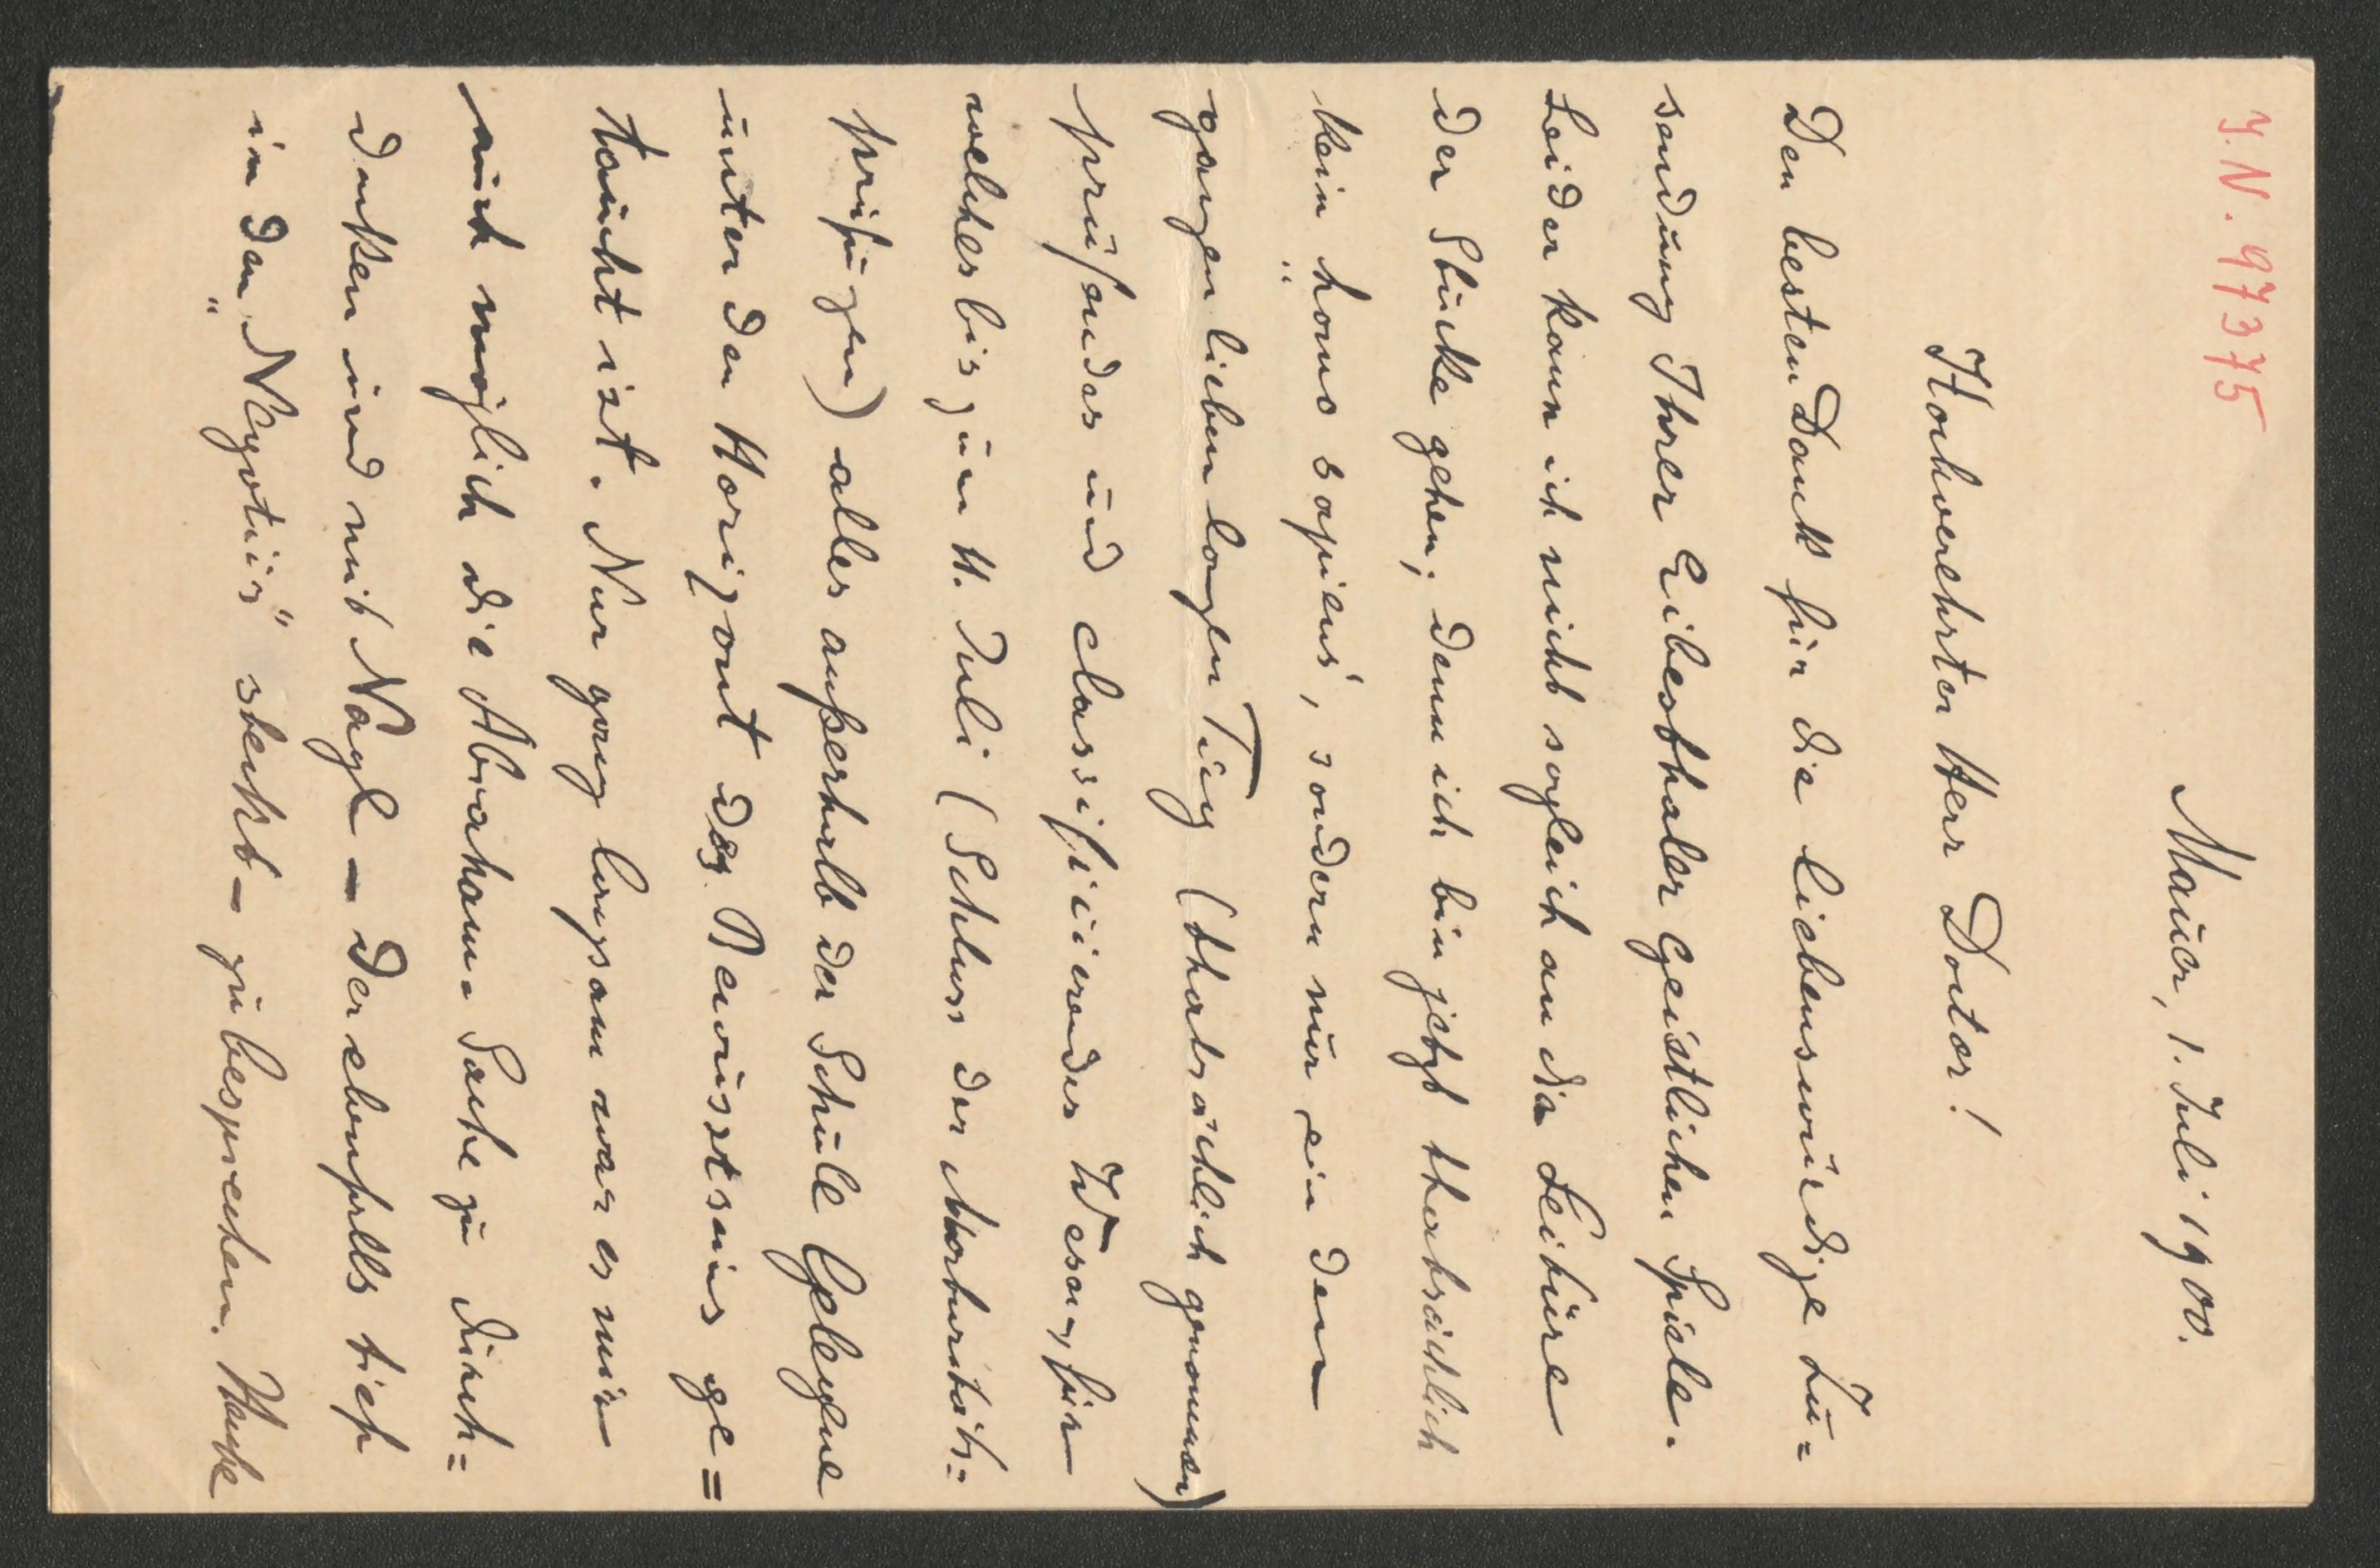 I. N. 97375
Mauer, 1. Juli 1900.
Hochverehrter Herr Doctor!
Den besten Dank für die liebenswürdige Zu=
sendung Ihrer Eibesthaler Geistlichen Spiele.
Leider kann ich nicht sogleich an die Lectüre
der Stücke gehen; denn ich bin jetzt thatsächlich
kein „homo sapiens“, sondern nur ein den
ganzen lieben langen Tag (thatsächlich genommen)
prüfendes und classificierendes Wesen, für
welches bis zum 11. Juli (Schluss der Maturitäts=
prüfungen) alles außerhalb der Schule Gelegene
unter den Horizont des Bewusstseins ge=
taucht ist. Nur ganz langsam war es mir
auch möglich die Abraham-Sache zu durch=
denken und mit Nagl – der ebenfalls tief
in den „Negotiis“ steckt – zu besprechen. Heute